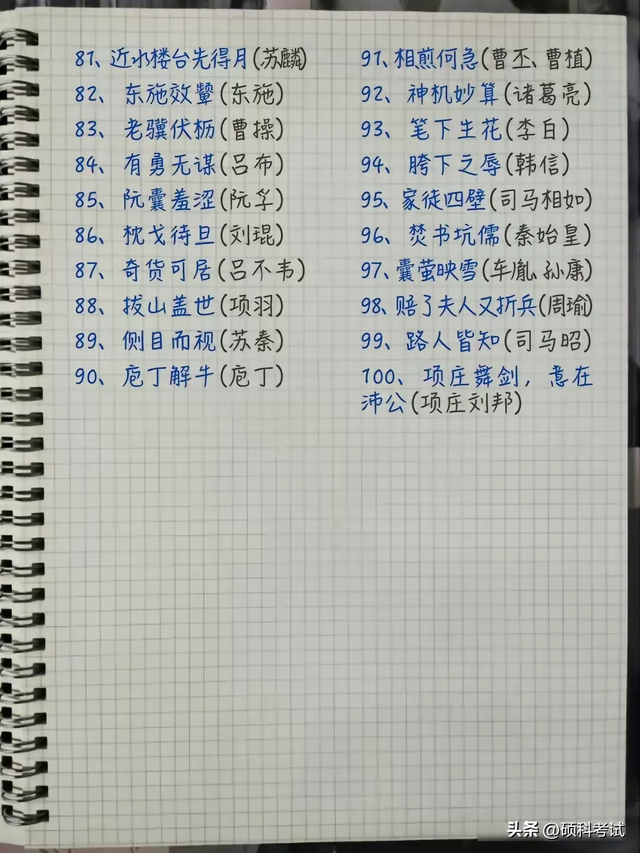 81、近水楼台先得月(苏麟)
82、东施效颦(东施)
83、老骥伏枥(曹操)
84、有勇无谋(吕布)
85、阮囊羞涩(阮孚)
86、枕戈待旦(刘琨)
87、奇货可居(吕不韦)
88、拔山盖世(项羽)
89、侧目而视(苏秦)
90、庖丁解牛(庖丁)
91、相煎何急(曹丕、曹植)
92、神机妙算(诸葛亮)
93、笔下生花(李白)
94、胯下之辱(韩信)
95、家徒四壁(司马相如)
96、焚书坑儒(秦始皇)
97、囊萤映雪(车胤、孙康)
98、赔了夫人又折兵(周瑜)
99、路人皆知(司马昭)
100、项庄舞剑，意在
沛公(项庄刘邦)
头条 @硕科考试